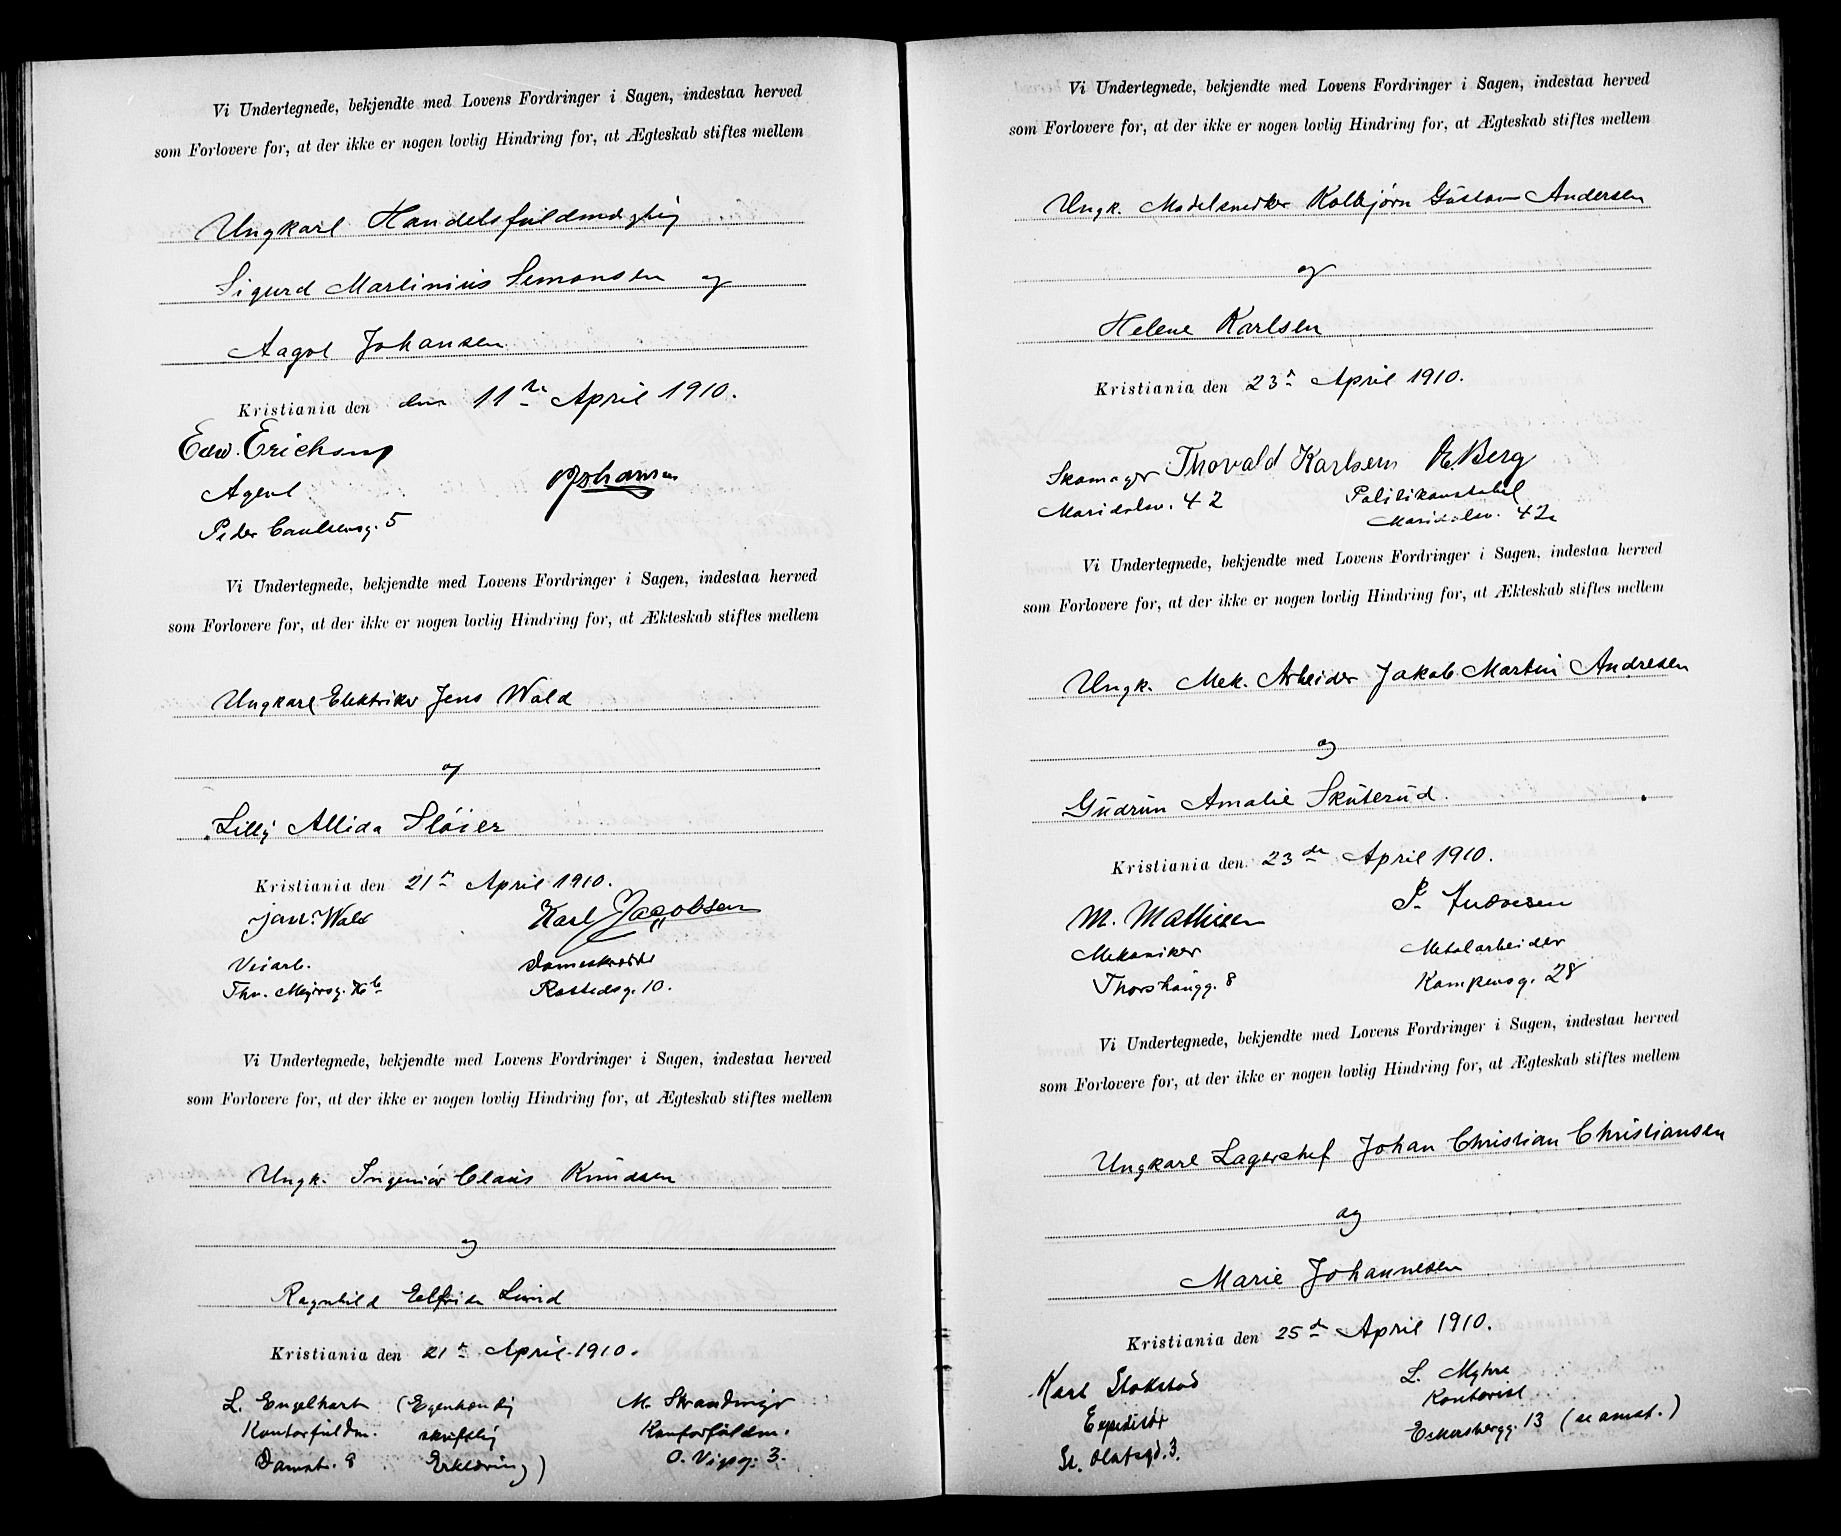 Vi Undertegnede, bekjendte med Lovens Fordringer i Sagen, indestaa herved
som Forlovere for, at der ikke er nogen lovlig Hindring for, at Ægteskab stiftes mellem
Ungkarl Handelsfuldmægtig
Sigurd Martinius Simonsen og
Aagot Johansen
Kristiania den den 11te April 1910.
Edw. Ericksen
Johansen
Agent
Peder Claussensg. 5
Vi Undertegnede, bekjendte med Lovens Fordringer i Sagen, indestaa herved
som Forlovere for, at der ikke er nogen lovlig Hindring for, at Ækteskab stiftes mellem
Ungkarl Elektriker Jens Wold
og
Lilly Allida Sløier
Kristiania den 21de April 1910.
Wold Karl Jacobsen
Veiarb. Dameskrædder
Thv. Meyersg. Rostedsg. 10.
Vi Undertegnede, bekjendte med Lovens Fordringer i Sagen, indestaa herved
som Forlovere for, at der ikke er nogen lovlig Hindring for, at Ægteskab stiftes mellem
Ungk. Ingeniør Claus Knudsen
og
Ragnhild Elfrida Lund
Kristiania den 21de April 1910.
L. Engelhart (Egenhændig M. Strandmyr
Kontorfuldm. skriftlig Kontorfuldm.
Damst. 8 Erklæring) O. Vigsg. 3.
Vi Undertegnede, bekjendte med Lovens Fordringer i Sagen, indestaa herved
som Forlovere for, at der ikke er nogen lovlig Hindring for, at Ægteskab stiftes mellem
Ungk. Modelsnedker Kolbjørn Gustav Andersen
og
Helene Karlsen
Kristiania den 23de April 1910.
Skomager Thovald Karlsen E. Berg
Maridalsv. 42 Politikonstabel
Maridalsv. 42
Vi Undertegnede, bekjendte med Lovens Fordringer i Sagen, indestaa herved
som Forlovere for, at der ikke er nogen lovlig Hindring for, at Ækteskab stiftes mellem
Ungk. Mek. Arbeider Jakob Martin Andresen
og
Gudrun Amalie Skuterud.
Kristiania den 23de April 1910.
M. Mathisen P. Andresen
Mekaniker Metalarbeider
Thorshaugg. 8 Kampensg. 28
Vi Undertegnede, bekjendte med Lovens Fordringer i Sagen, indestaa herved
som Forlovere for, at der ikke er nogen lovlig Hindring for, at Ægteskab stiftes mellem
Ungkarl Lagerchef Johan Christian Christiansen
og
Marie Johannesen
Kristiania den 25de April 1910.
Karl Stokstad L. Myhre
Expeditør Kontorist
St. Olafsgd. 3. Eckersbergg. 13